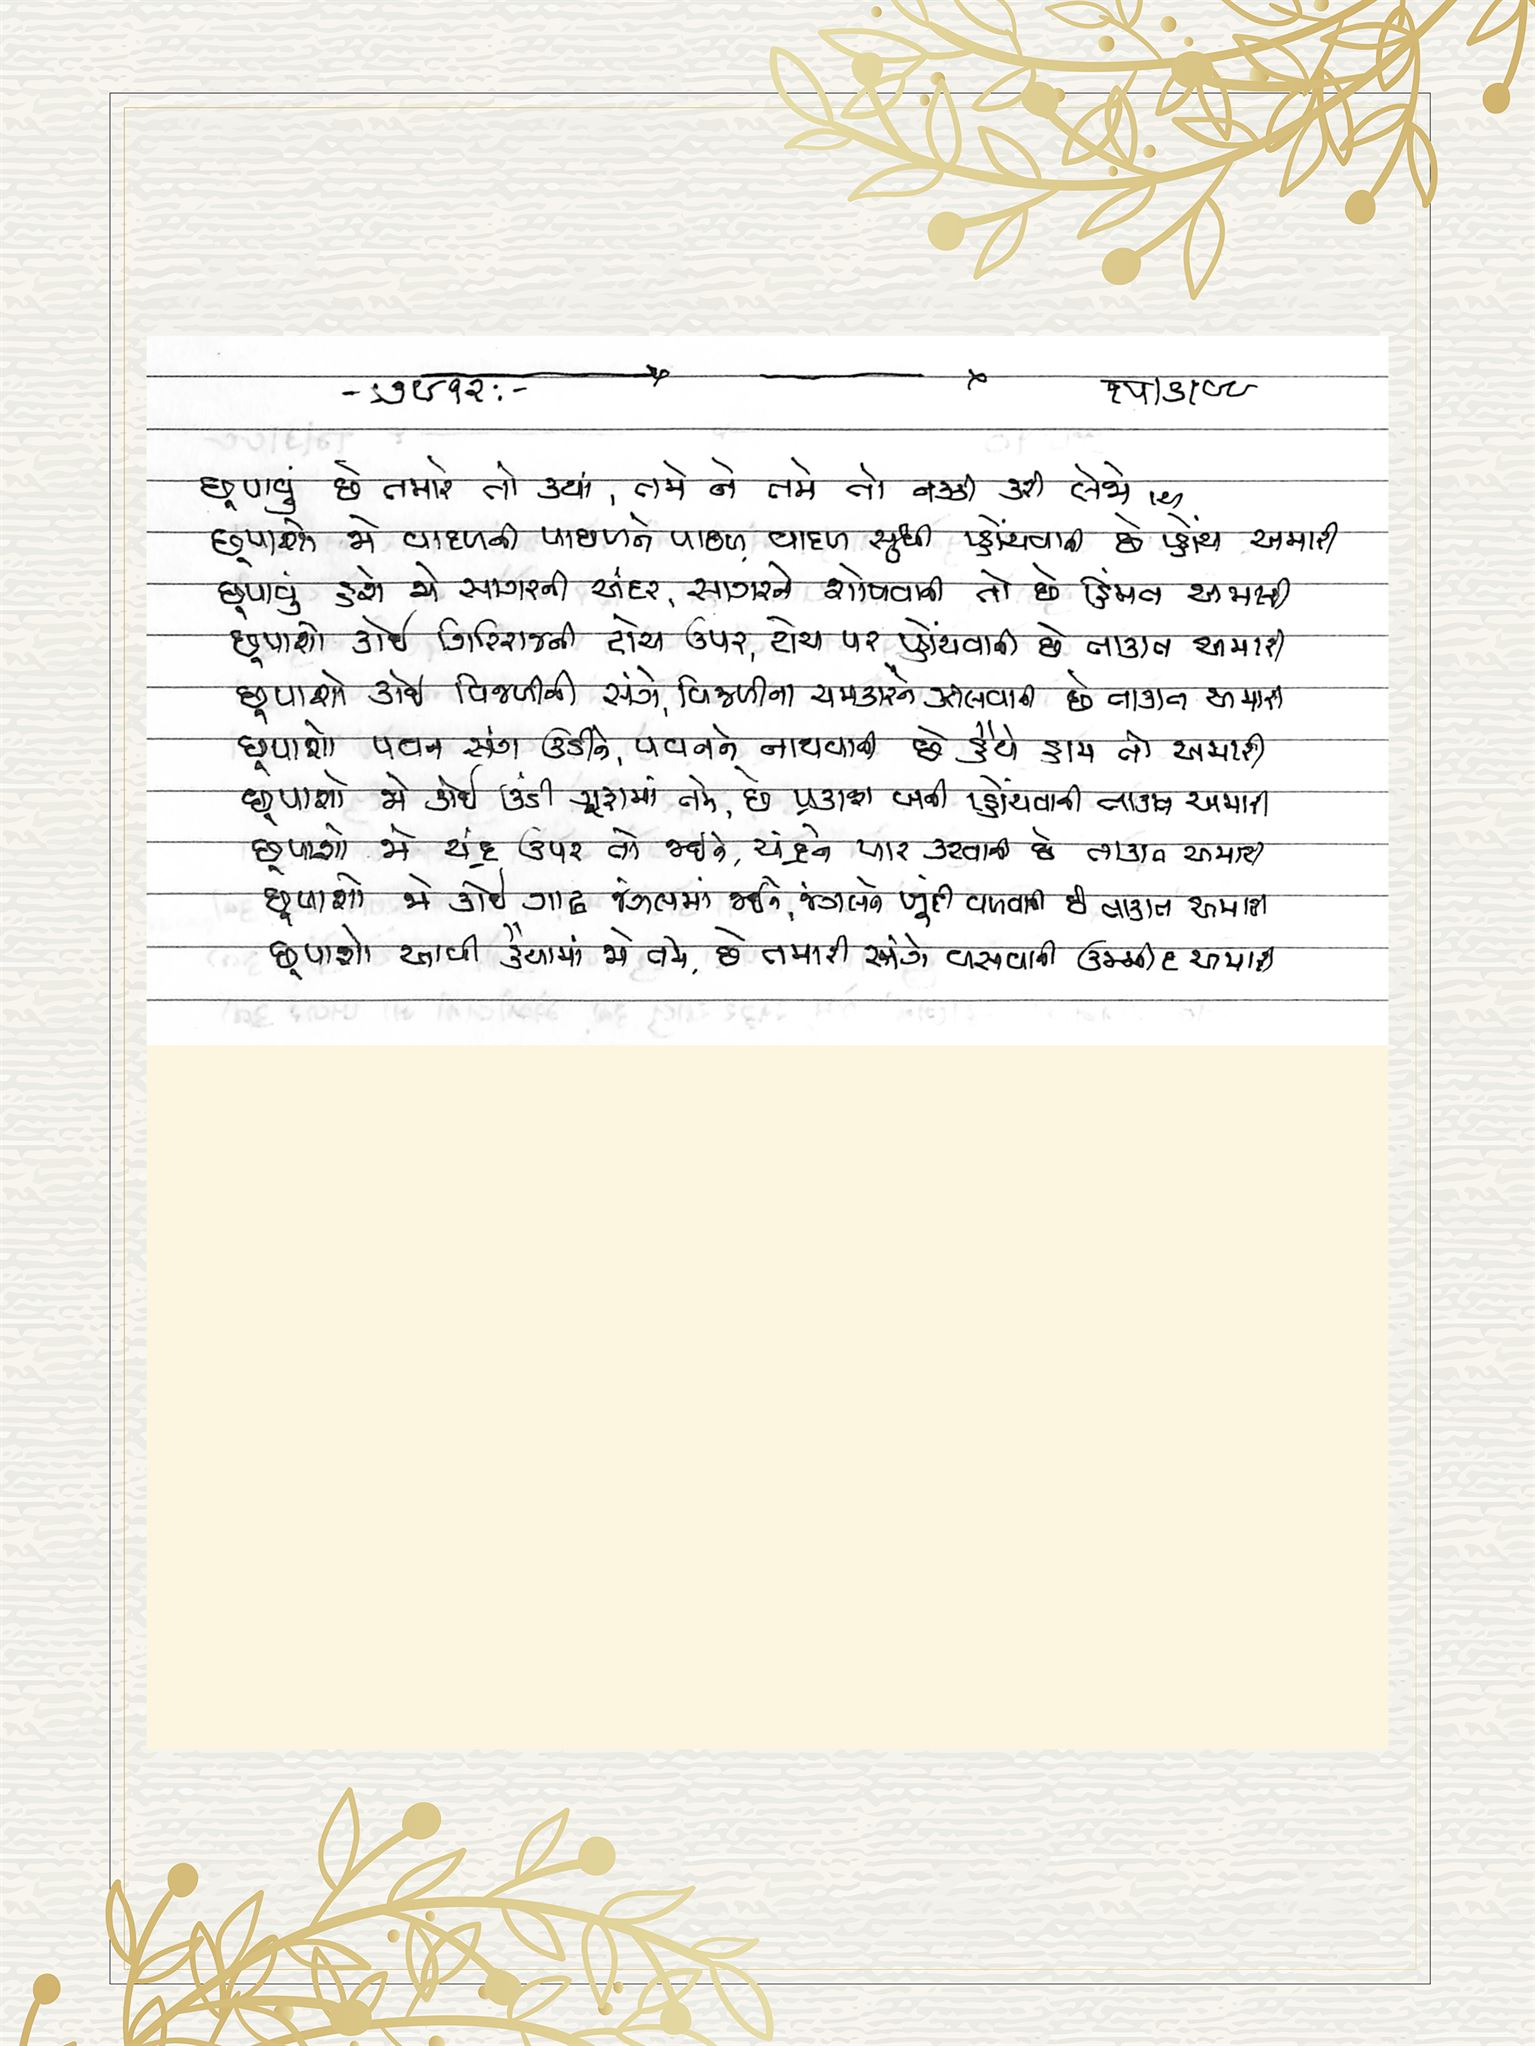 ૧૫/૩/૮૮
છૂપાવું છે તમારે તો ક્યાં, તમે ને તમે તો નક્કી કરી લેજો
છૂપાશો જો વાદળની પાછળને પાછળ, વાદળ સુધી પ્હોંચવાની છે પ્હોંચ અમારી
છૂપાવું હશે જો સાગરની અંદર, સાગરને શોષવાની તો છે હિંમત અમારી
છૂપાશો કોઈ ગિરિરાજની ટોચ ઉપર, ટોચ પર પ્હોંચવાની છે તાકાત અમારી
છૂપાશો કોઈ વિજળીની સંગે, વિજળીના ચમકારને ઝીલવાની છે તાકાત અમારી
છૂપાશો પવન સંગ ઉડીને, પવનને નાથવાની છે હૈયે હામ તો અમારી
છૂપાશો જો કોઈ ઉંડી ગુફામાં તમે, છે પ્રકાશ બની પ્હોંચવાની તાકાત અમારી
છૂપાશો જો ચંદ્ર ઉપર તો જઈને, ચંદ્રને પાર કરવાની છે તાકાત અમારી
છૂપાશો જો કોઈ ગાઢ જંગલમાં જઈને, જંગલને ખૂંદી વળવાની છે તાકાત અમારી
છૂપાશો આવી હૈયામાં જો તમે, છે તમારી સંગે વસવાની ઉમ્મીદ અમારી